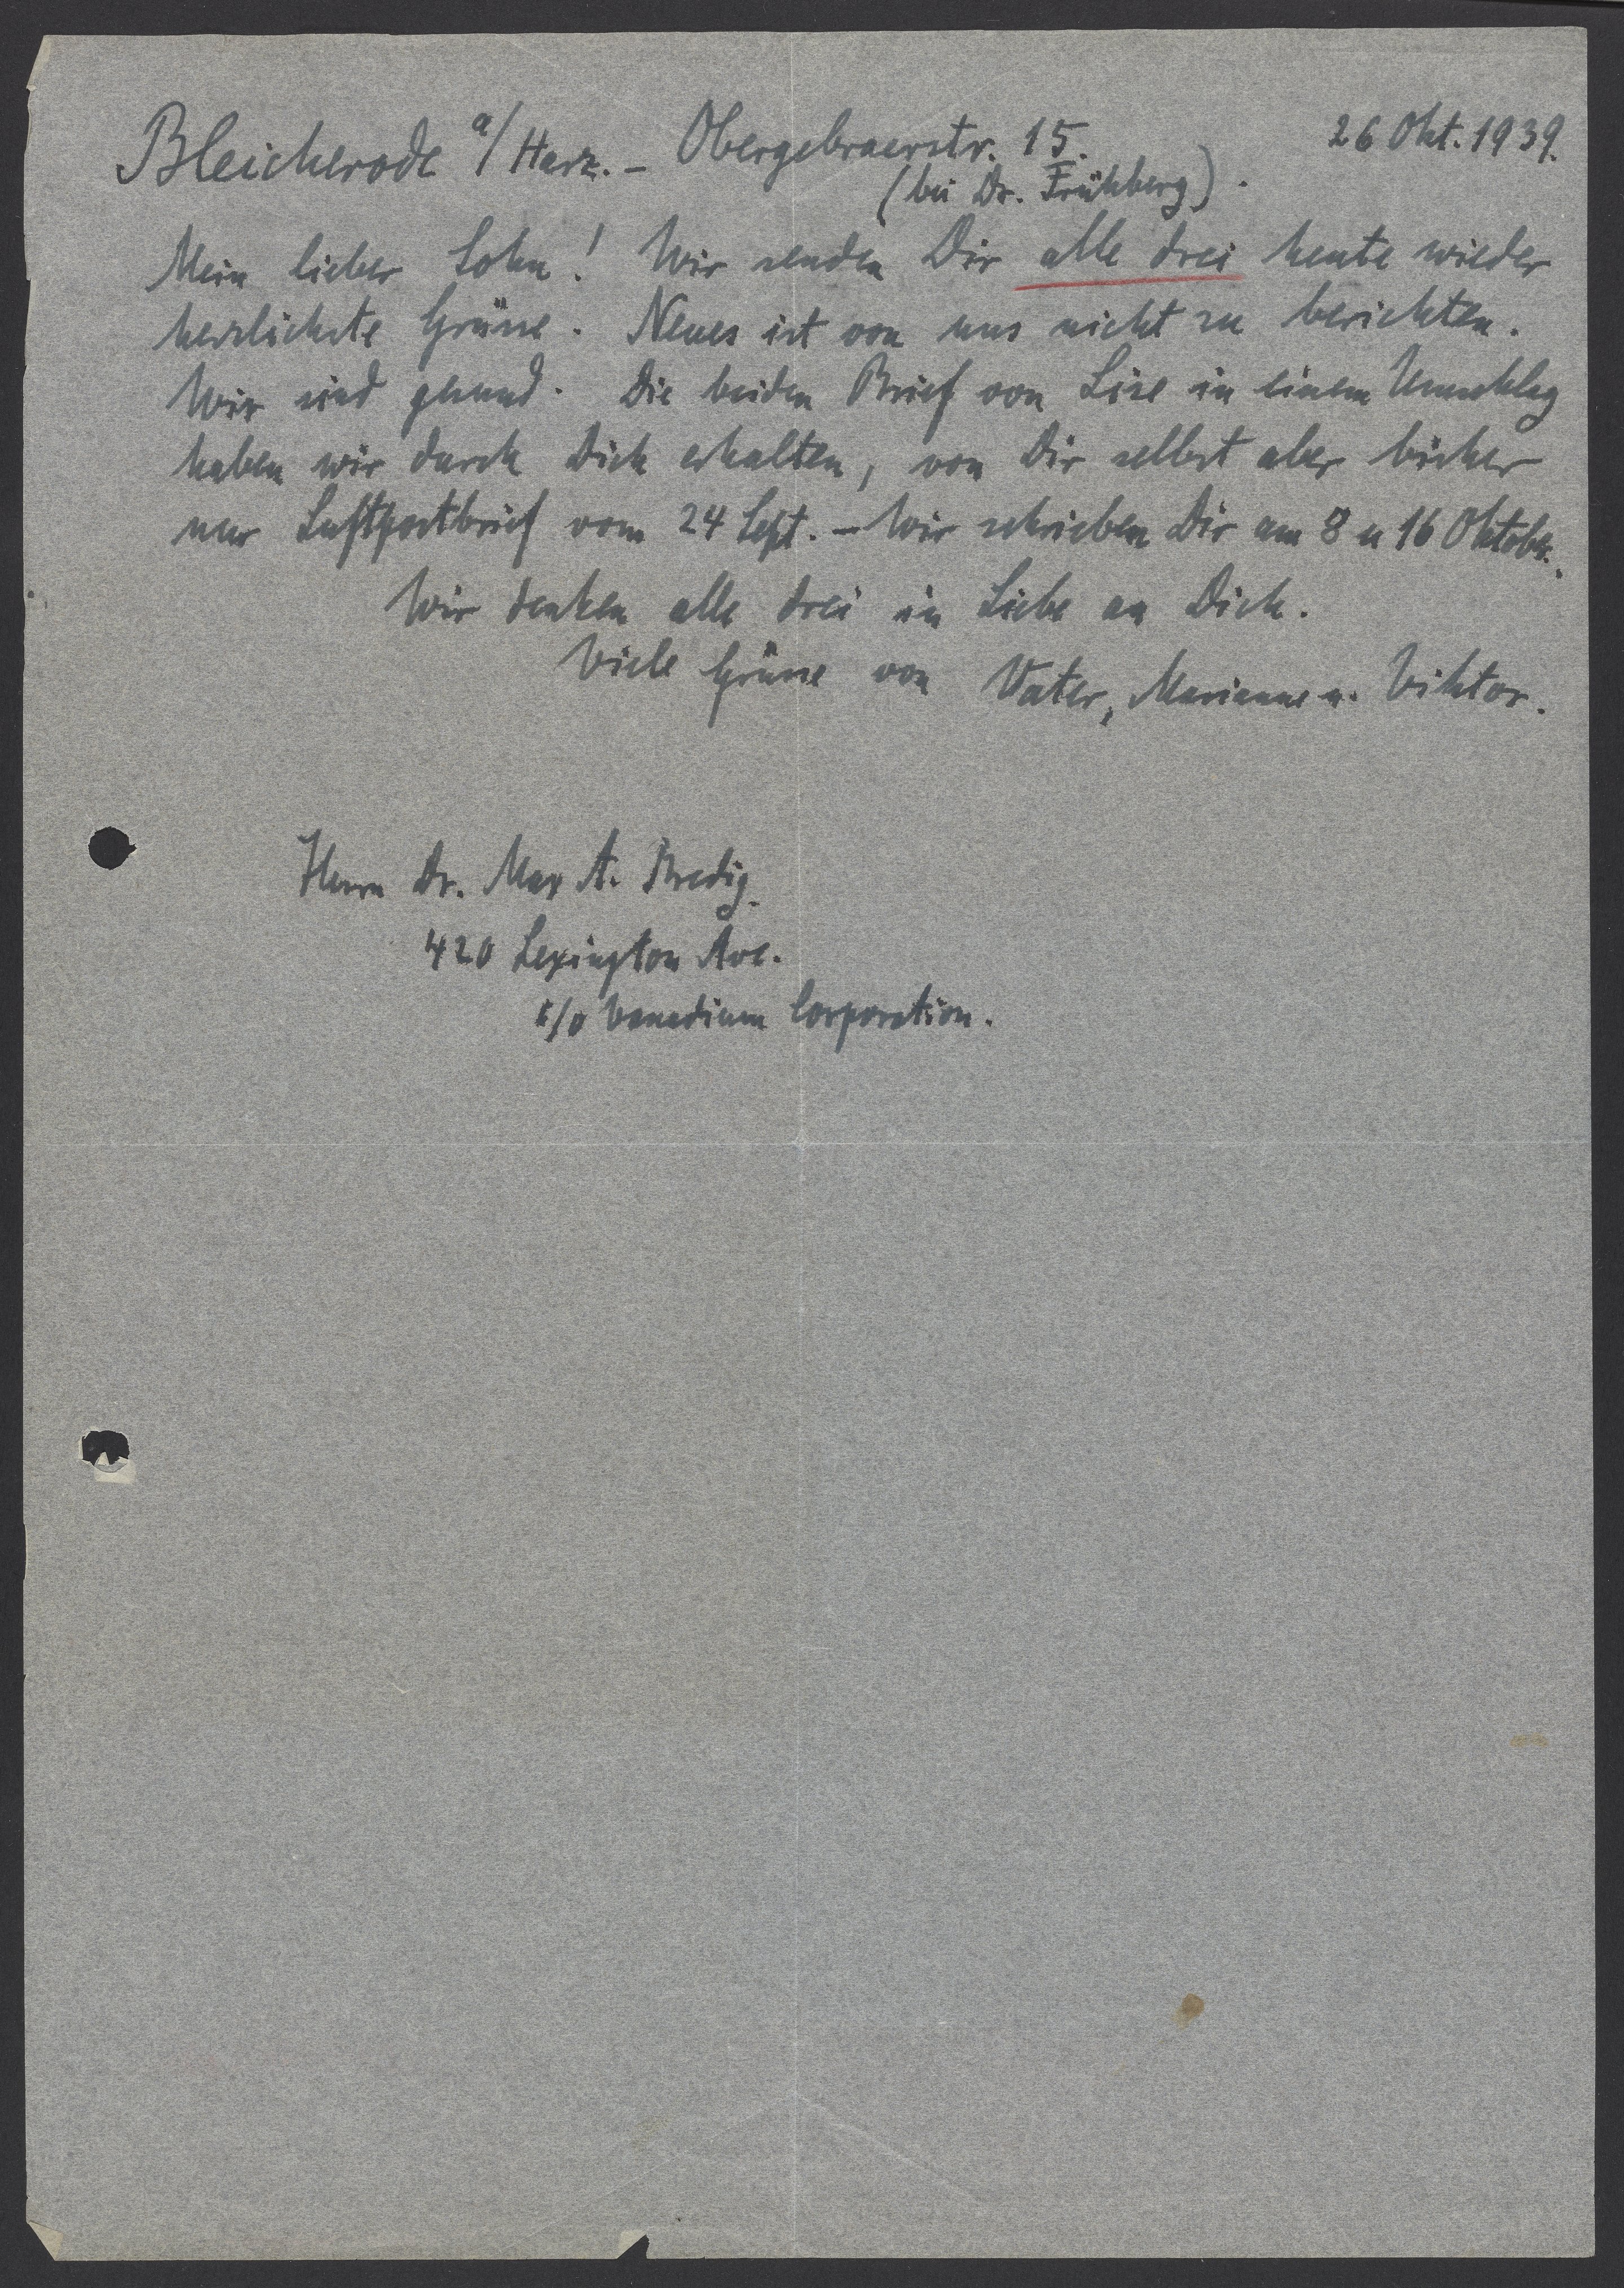 Bleicherode a/Harz. – Obergebraerstr. 15. 26 Okt. 1939.
(bei Dr. Frühberg).
Mein lieber Sohn! Wir senden Dir alle drei heute wieder
herzlichste Grüsse. Neues ist von uns nicht zu berichten.
Wir sind gesund. Die beiden Brief von Lise in einem Umschlag
haben wir durch Dich erhalten, von Dir selbst aber bisher
nur Luftpostbrief vom 24 Sept. – Wir schrieben Dir am 8 u 16 Oktober.
Wir denken alle drei in Liebe an Dich.
Viele Grüsse von Vater, Marianne u. Viktor.
Herrn Dr. Max A. Bredig.
420 Lexington Ave.
c/o Vanadium Corporation.